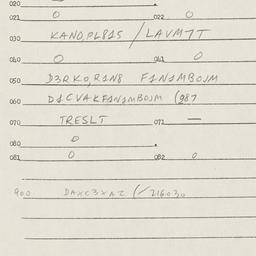 020
021 0 022 0
030 KANO,PL815 / LAVMTT
040 0 041 0
050 D3RK0,R1N8 F1N1MBOJM
060 D1CVAKF1N1MBOJM (987
070 TRESLT 071 —
080 0
081 0 082 0
900 DAXC3XAZ (/216030